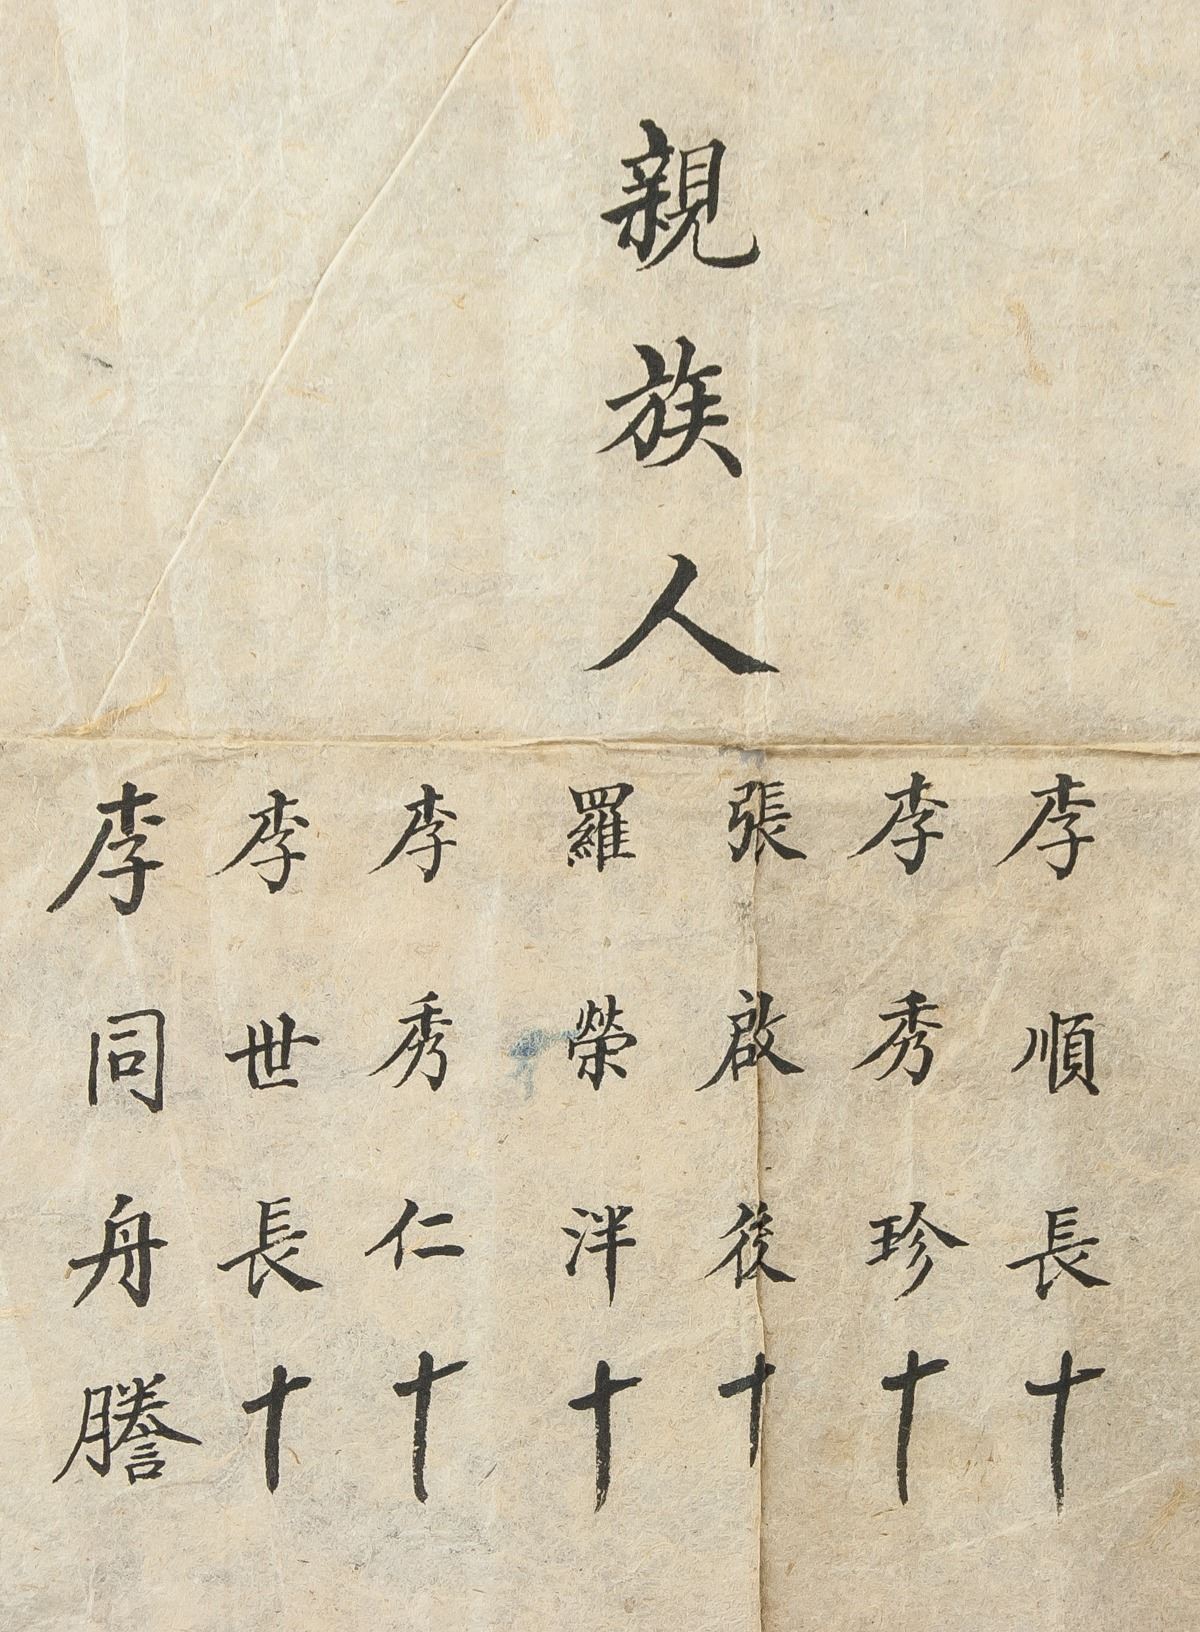 親族人
李順長十
李秀珍十
張啟後十
羅榮泮十
李秀仁十
李世長十
李同舟謄